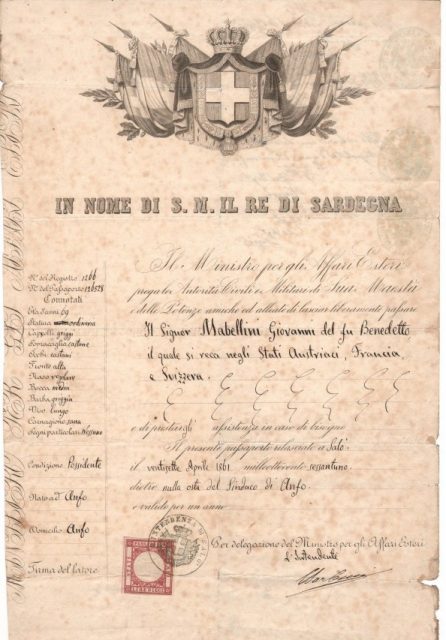 IN NOME DI S. M. IL RE DI SARDEGNA
Il Ministro per gli Affari Esteri
prega le Autorità Civili e Militari di Sua Maestà
e delle Potenze amiche ed alleate di lasciar liberamente passare
Il Signor Mabellini Giovanni del fu Benedetto
il quale si reca negli Stati Austriaci, Francia,
e Svizzera.
e di prestargli assistenza in caso di bisogno
Il presente passaporto rilasciato a Salò
il ventisette Aprile 1861 milleottocento sessantuno
dietro nulla osta del Sindaco di Anfo
è valido per un anno
Per delegazione del Ministro per gli Affari Esteri
L'Intendente
N.º del Registro 1266
N.º del Passaporto
Connotati
Età d'anni 69
Statura ordinaria
Capelli grigi
Sopracciglia castane
Occhi castani
Fronte alta
Naso
Bocca media
Barba grigia
Viso lungo
Carnagione sana
Segni particolari Nessuno
Condizione Possidente
Nato ad Anfo
Domicilio Anfo
Firma del latore